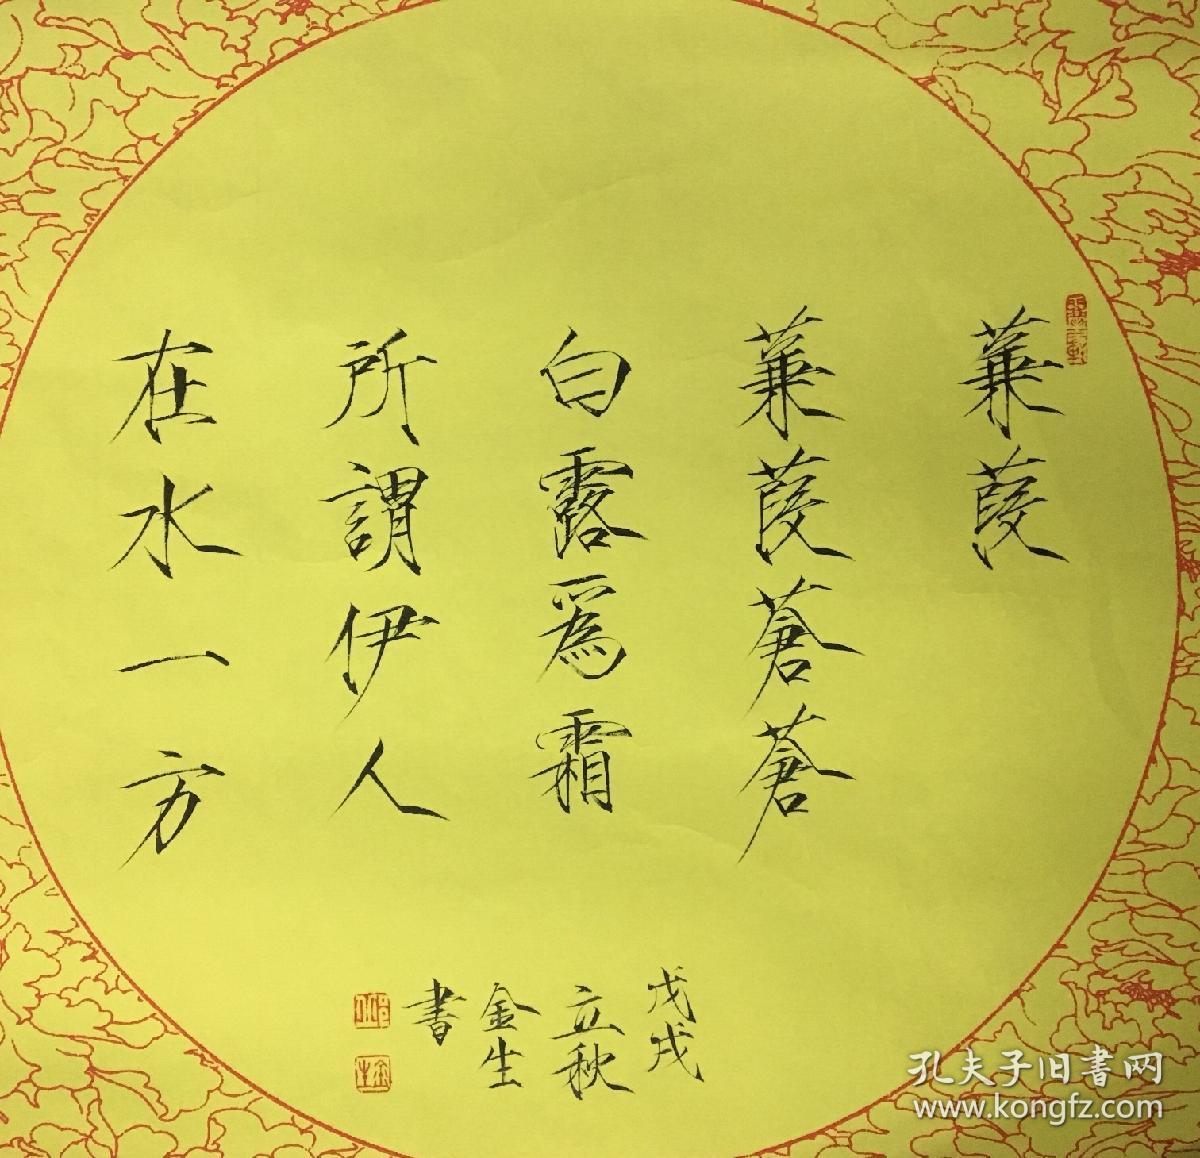 蒹葭
蒹葭蒼蒼
白露爲霜
所謂伊人
在水一方
戊戌
立秋
金生
書
孔夫子旧書网
www.kongfz.com